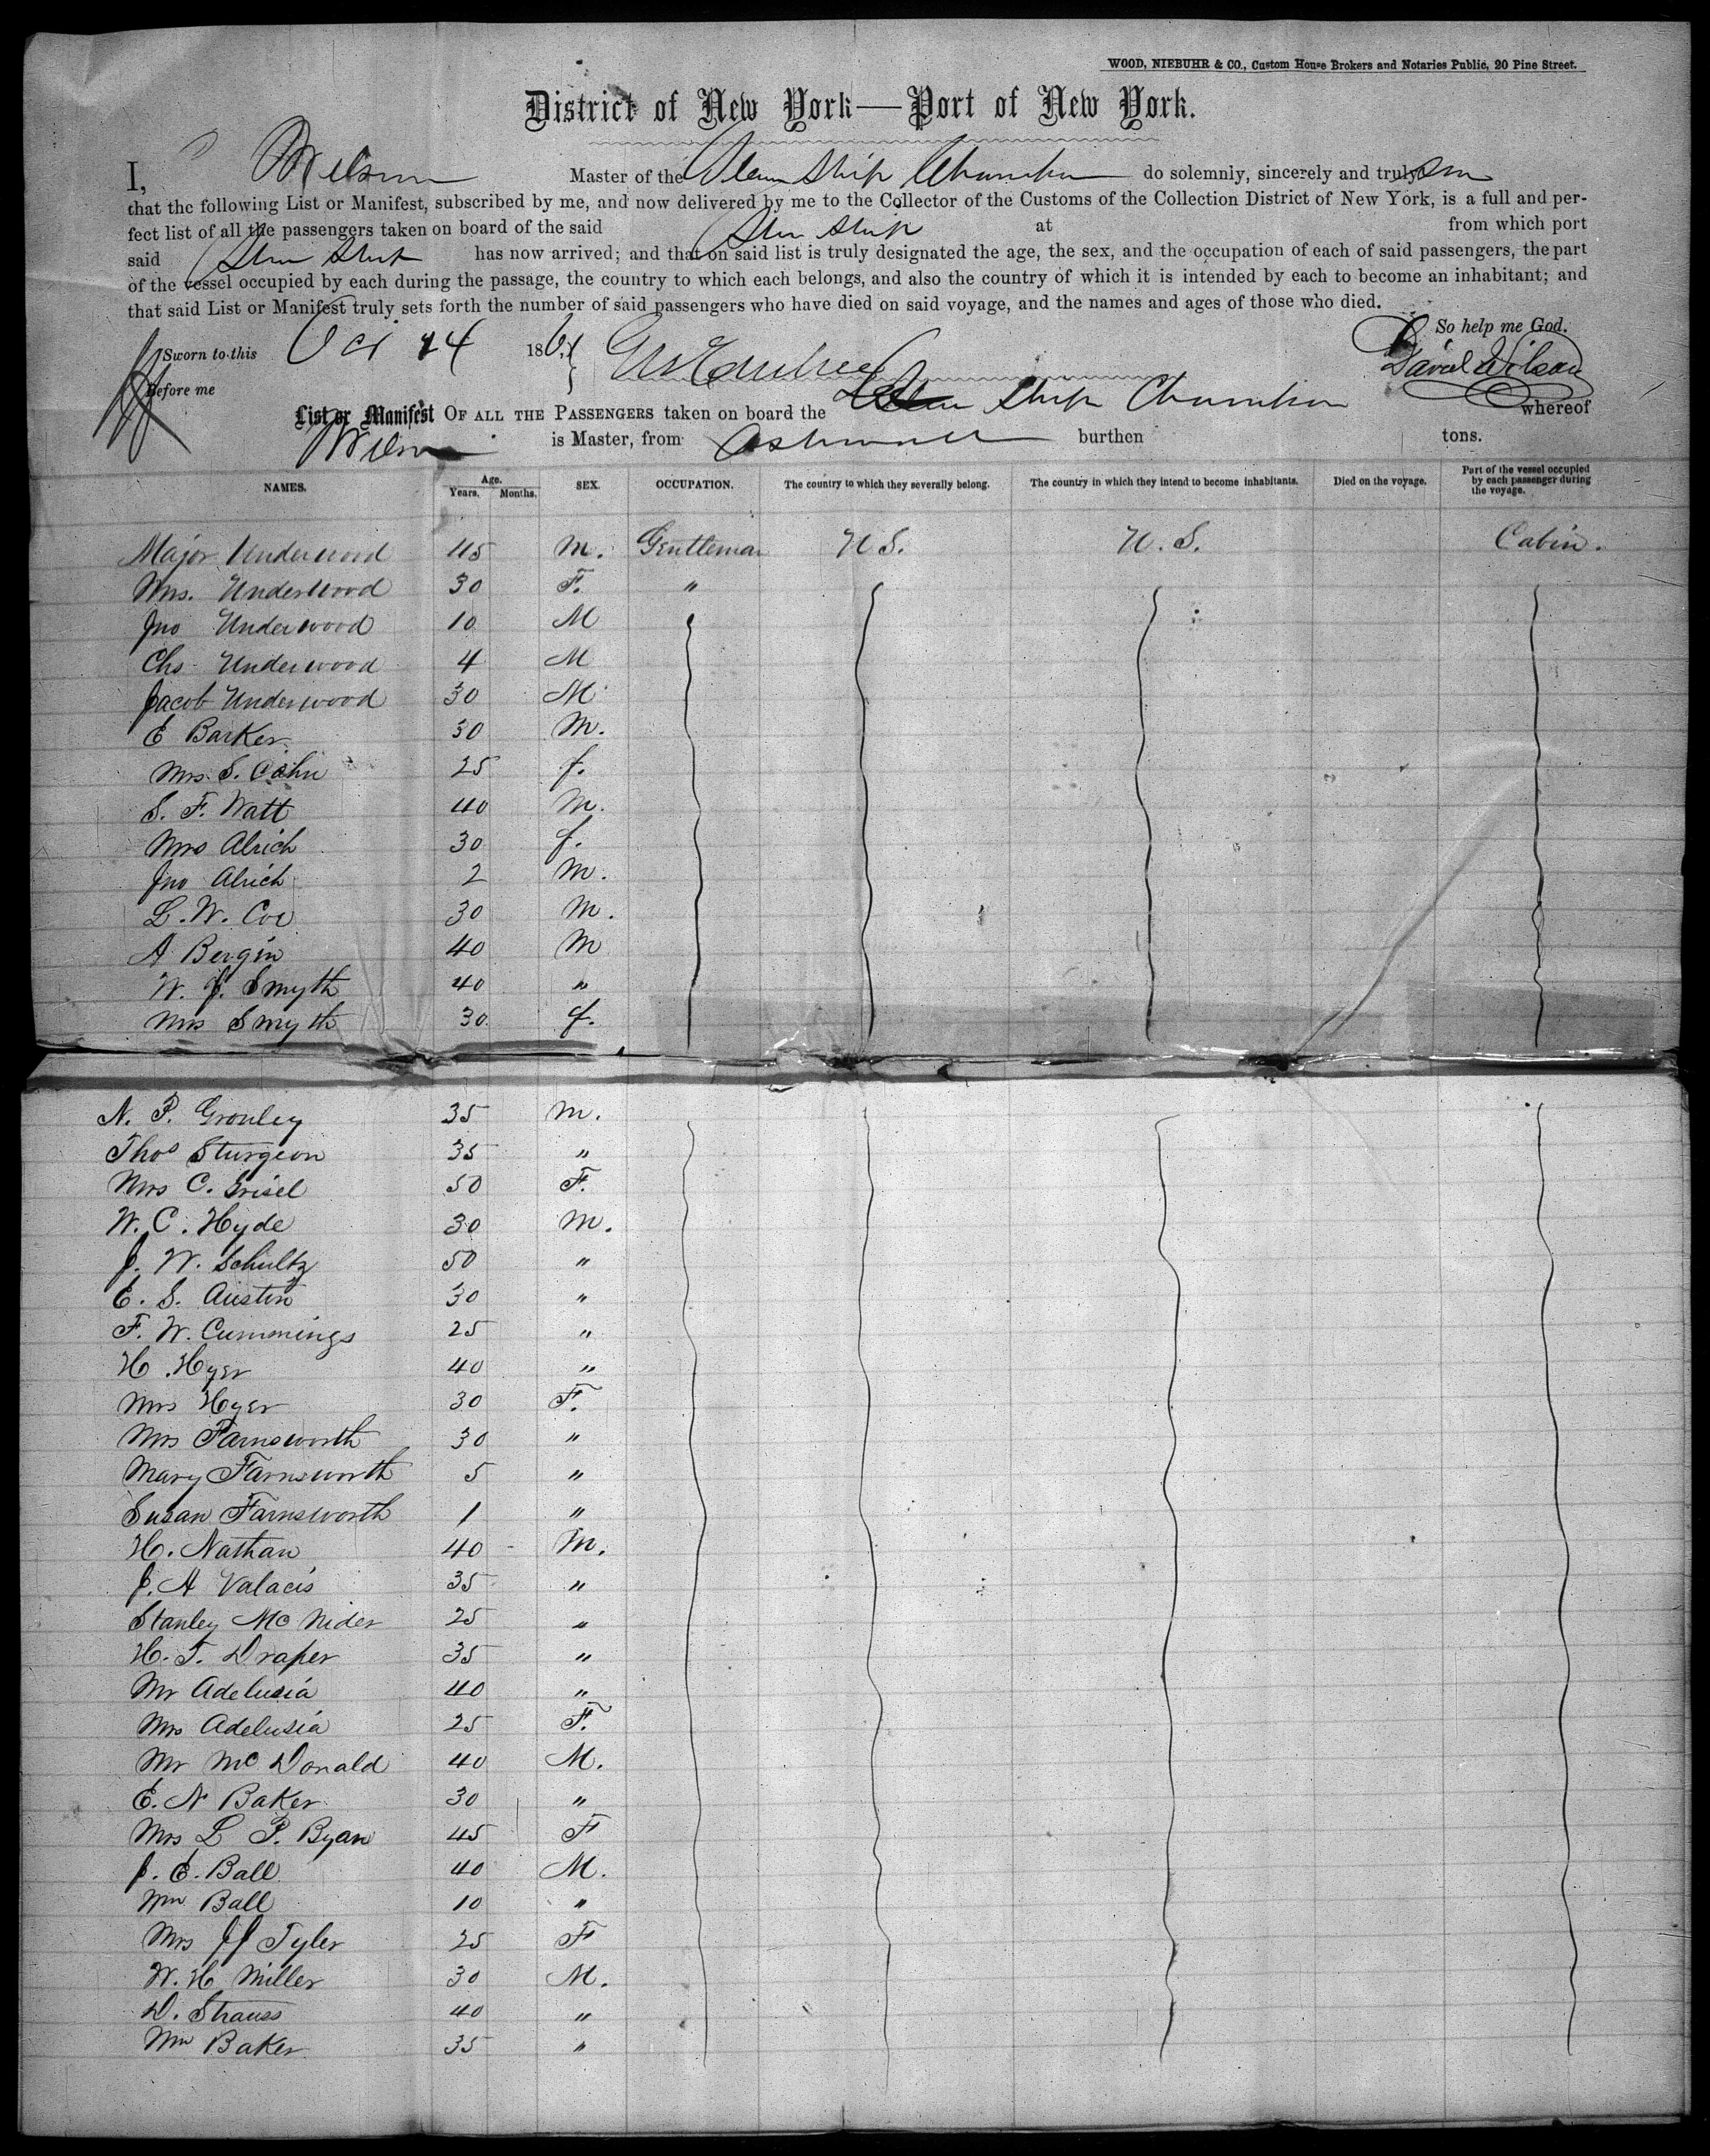 WOOD, NIEBUHR & CO., Custom House Brokers and Notaries Public, 20 Pine Street.
District of New York—Port of New York.
I, Wilson Master of the Steam Ship Champion do solemnly, sincerely and truly
that the following List or Manifest, subscribed by me, and now delivered by me to the Collector of the Customs of the Collection District of New York, is a full and per-
fect list of all the passengers taken on board of the said Stm Ship at from which port
said Stm Ship has now arrived; and that on said list is truly designated the age, the sex, and the occupation of each of said passengers, the part
of the vessel occupied by each during the passage, the country to which each belongs, and also the country of which it is intended by each to become an inhabitant; and
that said List or Manifest truly sets forth the number of said passengers who have died on said voyage, and the names and ages of those who died.
So help me God.
Sworn to this Oct 24 186
David Wilson
Before me
List or Manifest OF ALL THE PASSENGERS taken on board the Steam Ship Champion whereof
Wilson is Master, from Aspinwall burthen tons.
NAMES. Age. Years. Months. SEX. OCCUPATION. The country to which they severally belong. The country in which they intend to become inhabitants. Died on the voyage. Part of the vessel occupied by each passenger during the voyage.
Major Underwood 45 M. Gentleman U.S. U.S. Cabin.
Mrs. Underwood 30 F. "
Jno Underwood 10 M
Chs Underwood 4 M
Jacob Underwood 30 M
E Barker 30 M.
Mrs. S. Cohn 25 f.
S. F. Watt 40 M.
Mrs Alrich 30 f.
Jno Alrich 2 M.
L. W. Coe 30 M.
A Bergin 40 M
W. J. Smyth 40 "
Mrs Smyth 30 f.
N. P. Gronley 35 M.
Thos Sturgeon 35 "
Mrs C. Grisel 50 F.
W. C. Hyde 30 M.
J. W. Schultz 50 "
E. S. Austin 30 "
F. W. Cummings 25 "
H. Hyer 40 "
Mrs Hyer 30 F.
Mrs Farnsworth 30 "
Mary Farnsworth 5 "
Susan Farnsworth 1 "
H. Nathan 40 M.
J. A Valacis 35 "
Stanley McNider 25 "
H. T. Draper 35 "
Mr Adelusia 40 "
Mrs Adelusia 25 F.
Mr McDonald 40 M.
E. N Baker 30 "
Mrs L P. Byan 45 F
J. E. Ball 40 M.
Wm Ball 10 "
Mrs JJ Tyler 25 F
W. H Miller 30 M.
D. Strauss 40 "
Wm Baker 35 "